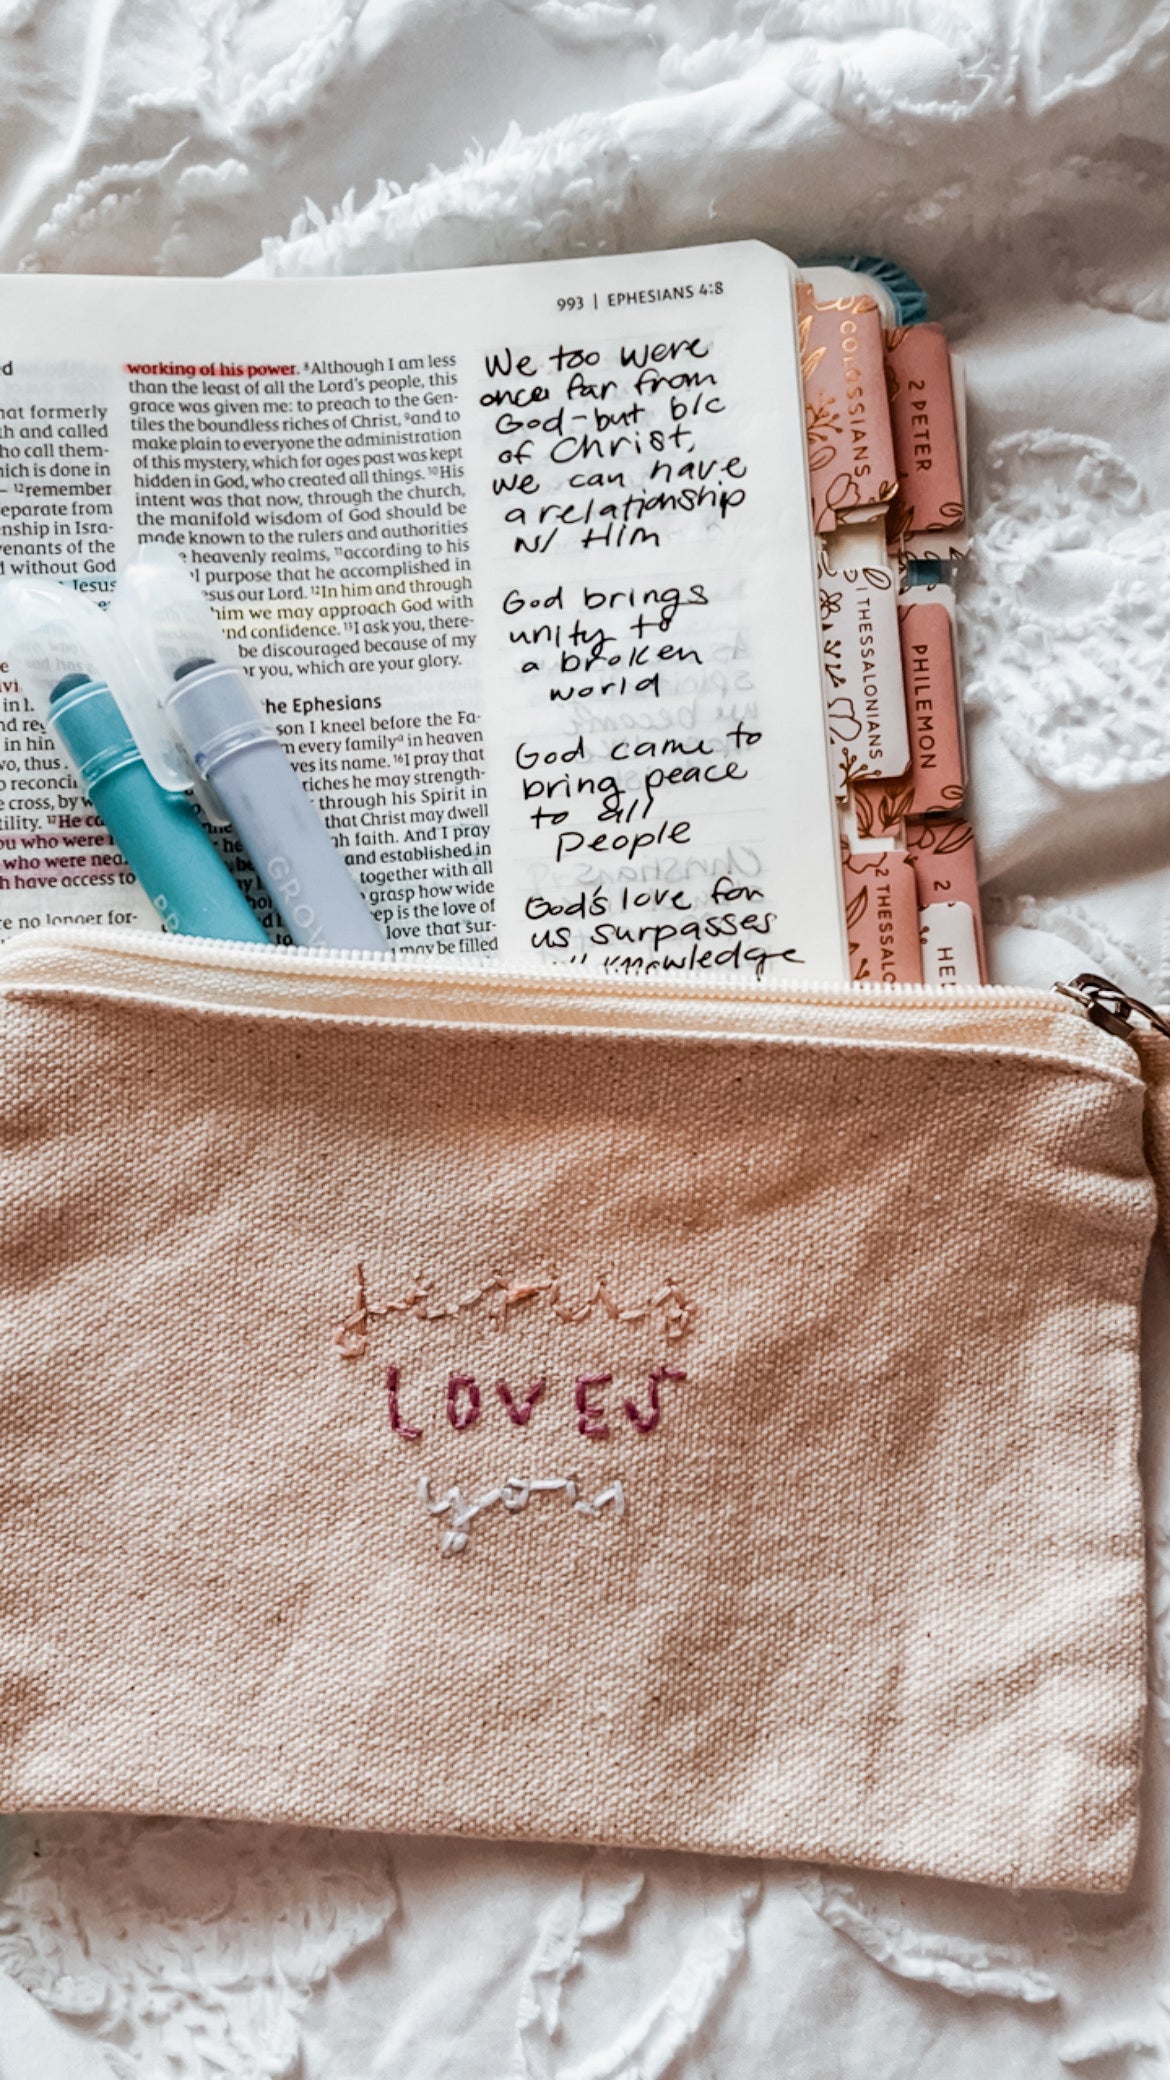 993 | EPHESIANS 4:8
hat formerly
th and called
ho call them-
hich is done in
– ¹²remember
eparate from
nship in Isra-
venants of the
d without God
Jesus
in hin
vo, thus
o reconcil
e cross, by w
tility. ¹⁷He ca
ou who were
who were nea
h have access to
re no longer for-
working of his power. ⁸Although I am less
than the least of all the Lord's people, this
grace was given me: to preach to the Gen-
tiles the boundless riches of Christ, ⁹and to
make plain to everyone the administration
of this mystery, which for ages past was kept
hidden in God, who created all things. ¹⁰His
intent was that now, through the church,
the manifold wisdom of God should be
made known to the rulers and authorities
e heavenly realms, ¹¹according to his
l purpose that he accomplished in
esus our Lord. ¹²In him and through
him we may approach God with
nd confidence. ¹³I ask you, there-
be discouraged because of my
or you, which are your glory.
he Ephesians
son I kneel before the Fa-
m every familyᵃ in heaven
ves its name. ¹⁶I pray that
riches he may strength-
through his Spirit in
that Christ may dwell
gh faith. And I pray
and established in
together with all
grasp how wide
ep is the love of
love that sur-
may be filled
We too were
once far from
God-but b/c
of Christ,
we can have
a relationship
w/ Him
God brings
unity to
a broken
world
God came to
bring peace
to all
People
God's love for
us surpasses
knowledge
COLOSSIANS
2 PETER
1 THESSALONIANS
PHILEMON
2 THESSALO
2
HE
GROW
jesus
LOVES
you